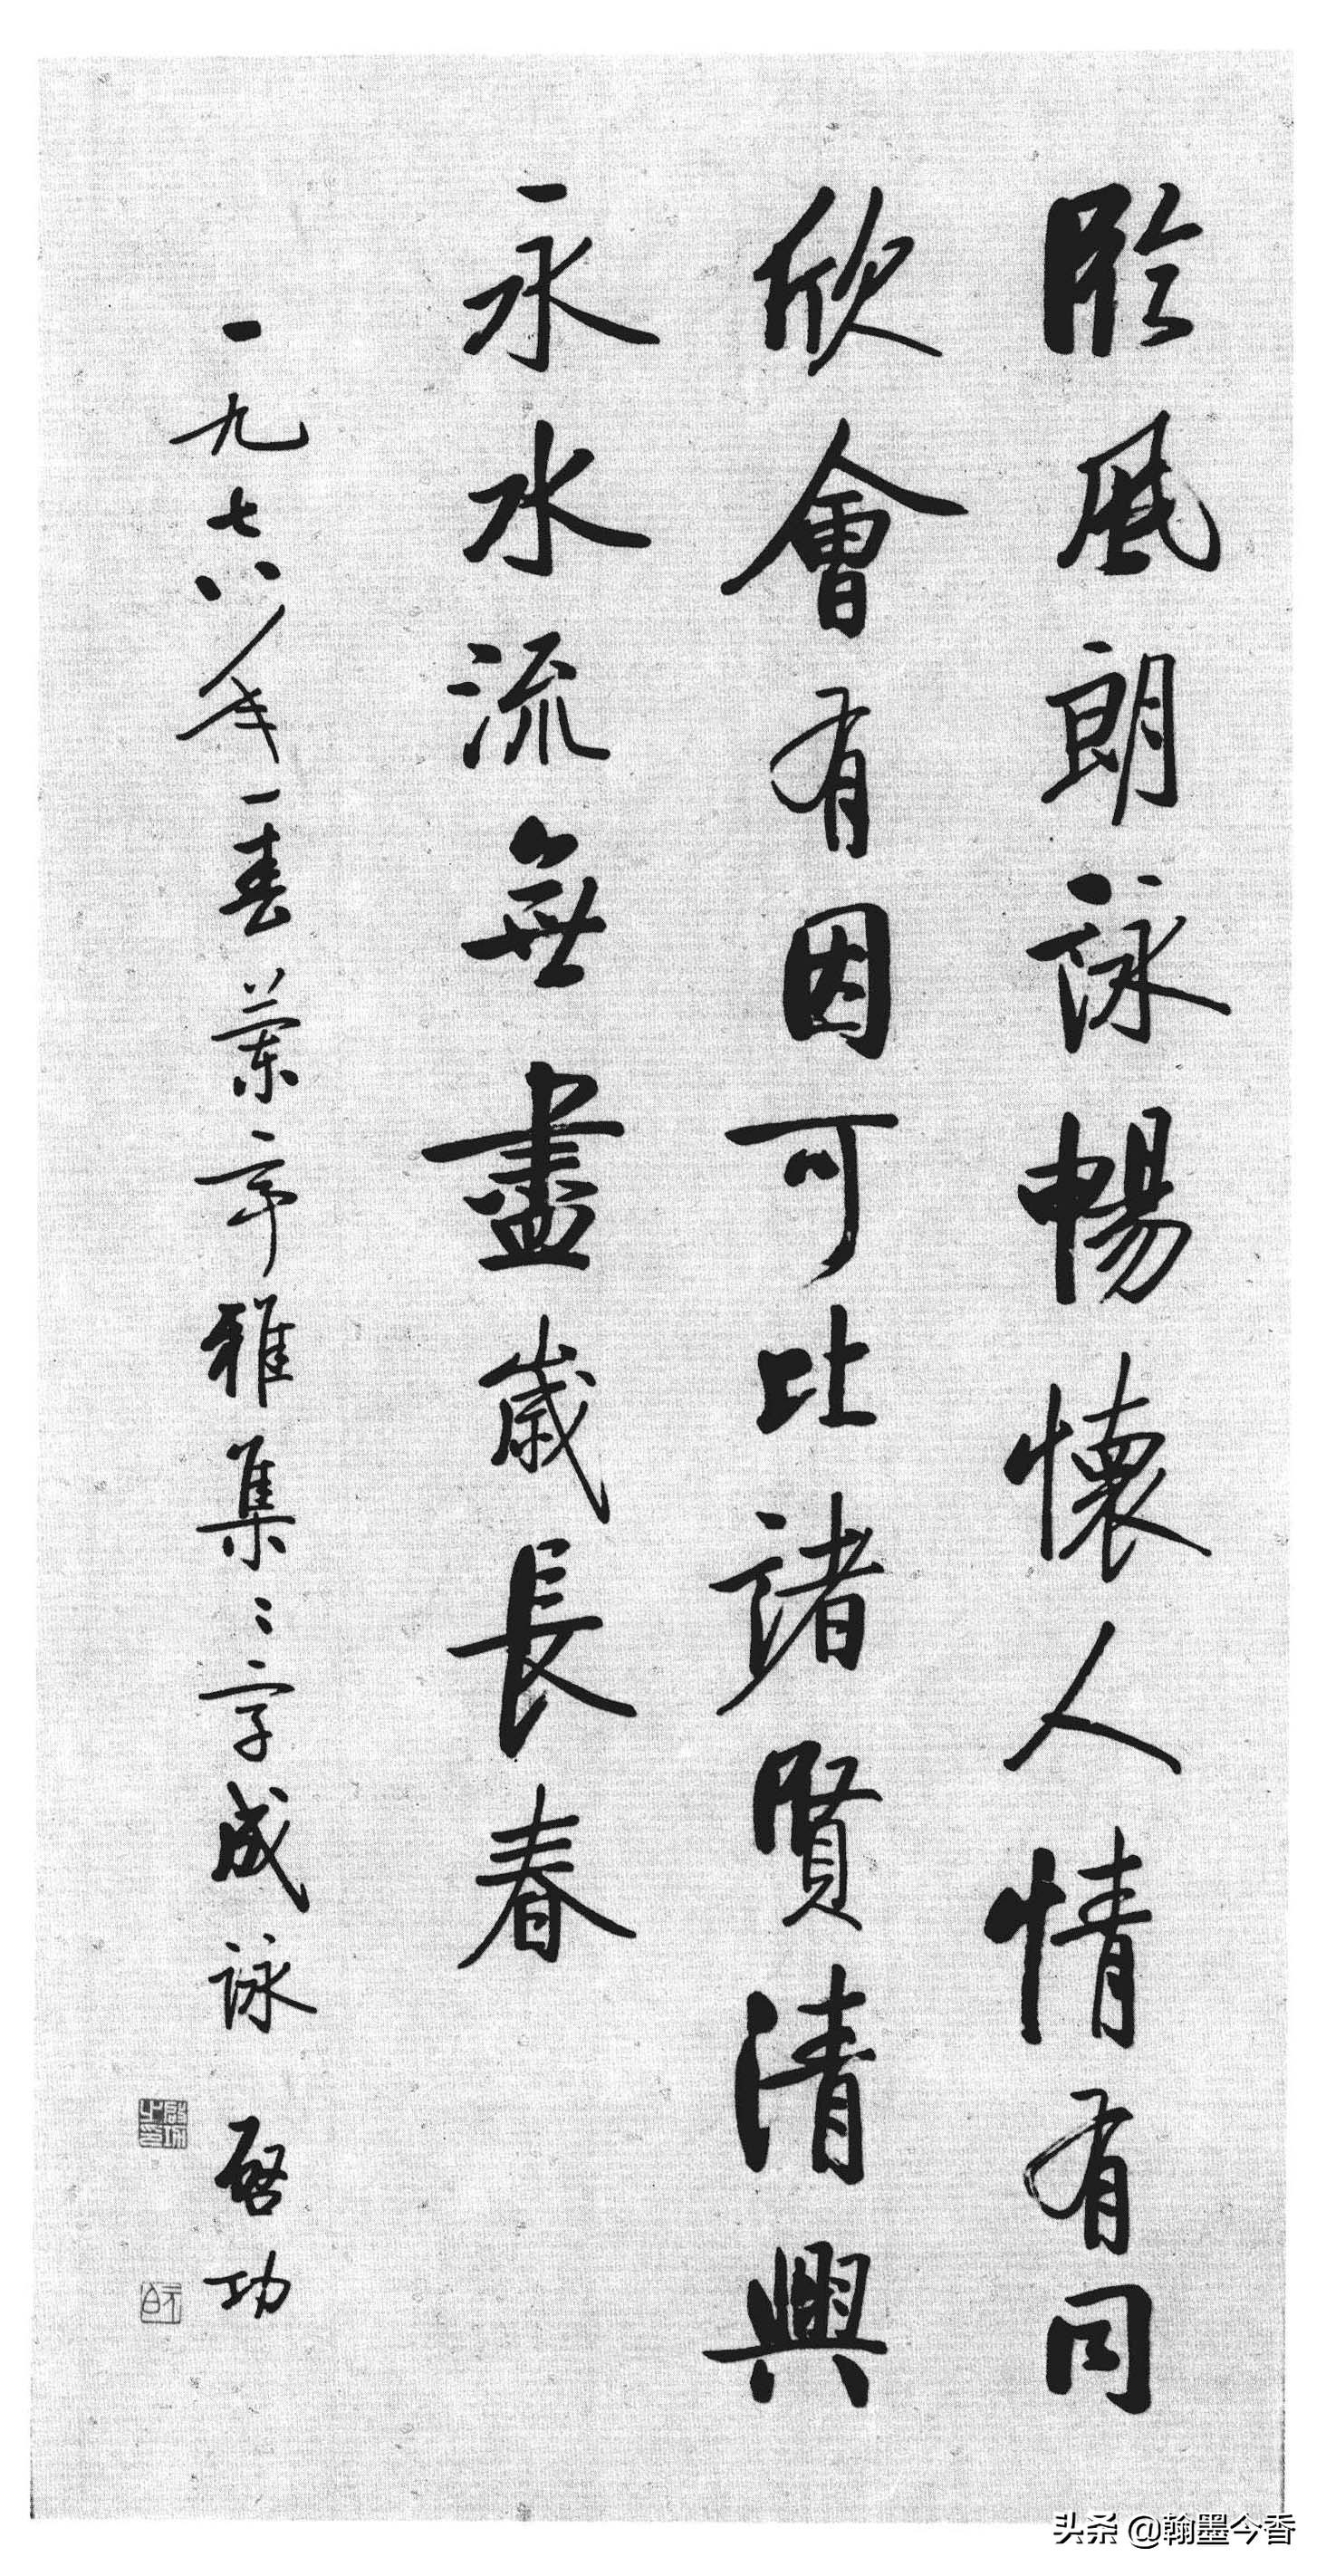 臨風朗詠暢懷人情有同
欣會有因可比諸賢清興
永水流無盡歲長春
一九七八年春蘭亭雅集〻字成詠 啓功
啓功之印
元白
头条 @翰墨今香